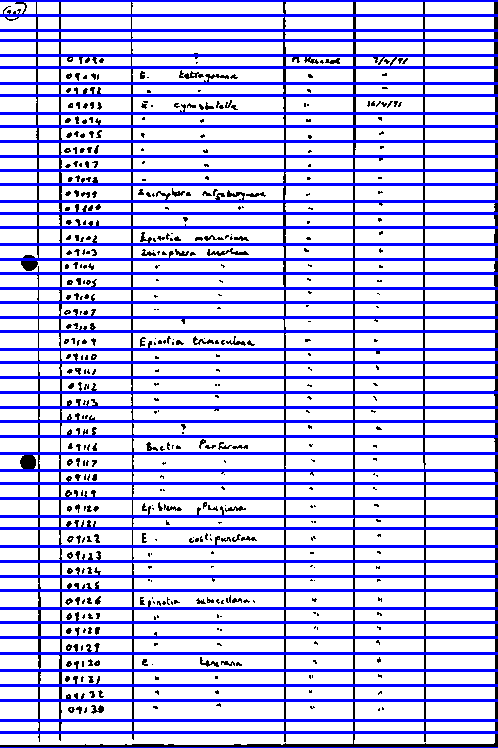 09090 ? 
09091 E. tetragonana " "
09092 " " " "
09093 E. cynosbatella " 16/4/91
09094 " " " "
09095 " " " "
09096 " " " "
09097 " " " "
09098 " " " "
09099 Zeiraphera ratzeburgiana " "
09100 " " " "
09101 ? " "
09102 Epinotia " "
09103 Zeiraphera insertana " "
09104 " " " "
09105 " " " "
09106 " " " "
09107 " " " "
09108 " " "
09109 Epinotia trimaculana " "
09110 " " " "
09111 " " " "
09112 " " " "
09113 " " " "
09114 " " " "
09115 ? " "
09116 Bactra furfurana " "
09117 " " " "
09118 " " " "
09119 " " " "
09120 Epiblema pflugiana " "
09121 " " " "
09122 E. costipunctana " "
09123 " " " "
09124 " " " "
09125 " " " "
09126 Epinotia subocellana. " "
09127 " " " "
09128 " " " "
09129 " " " "
09130 E. " "
09131 " " " "
09132 " " " "
09133 " " " "